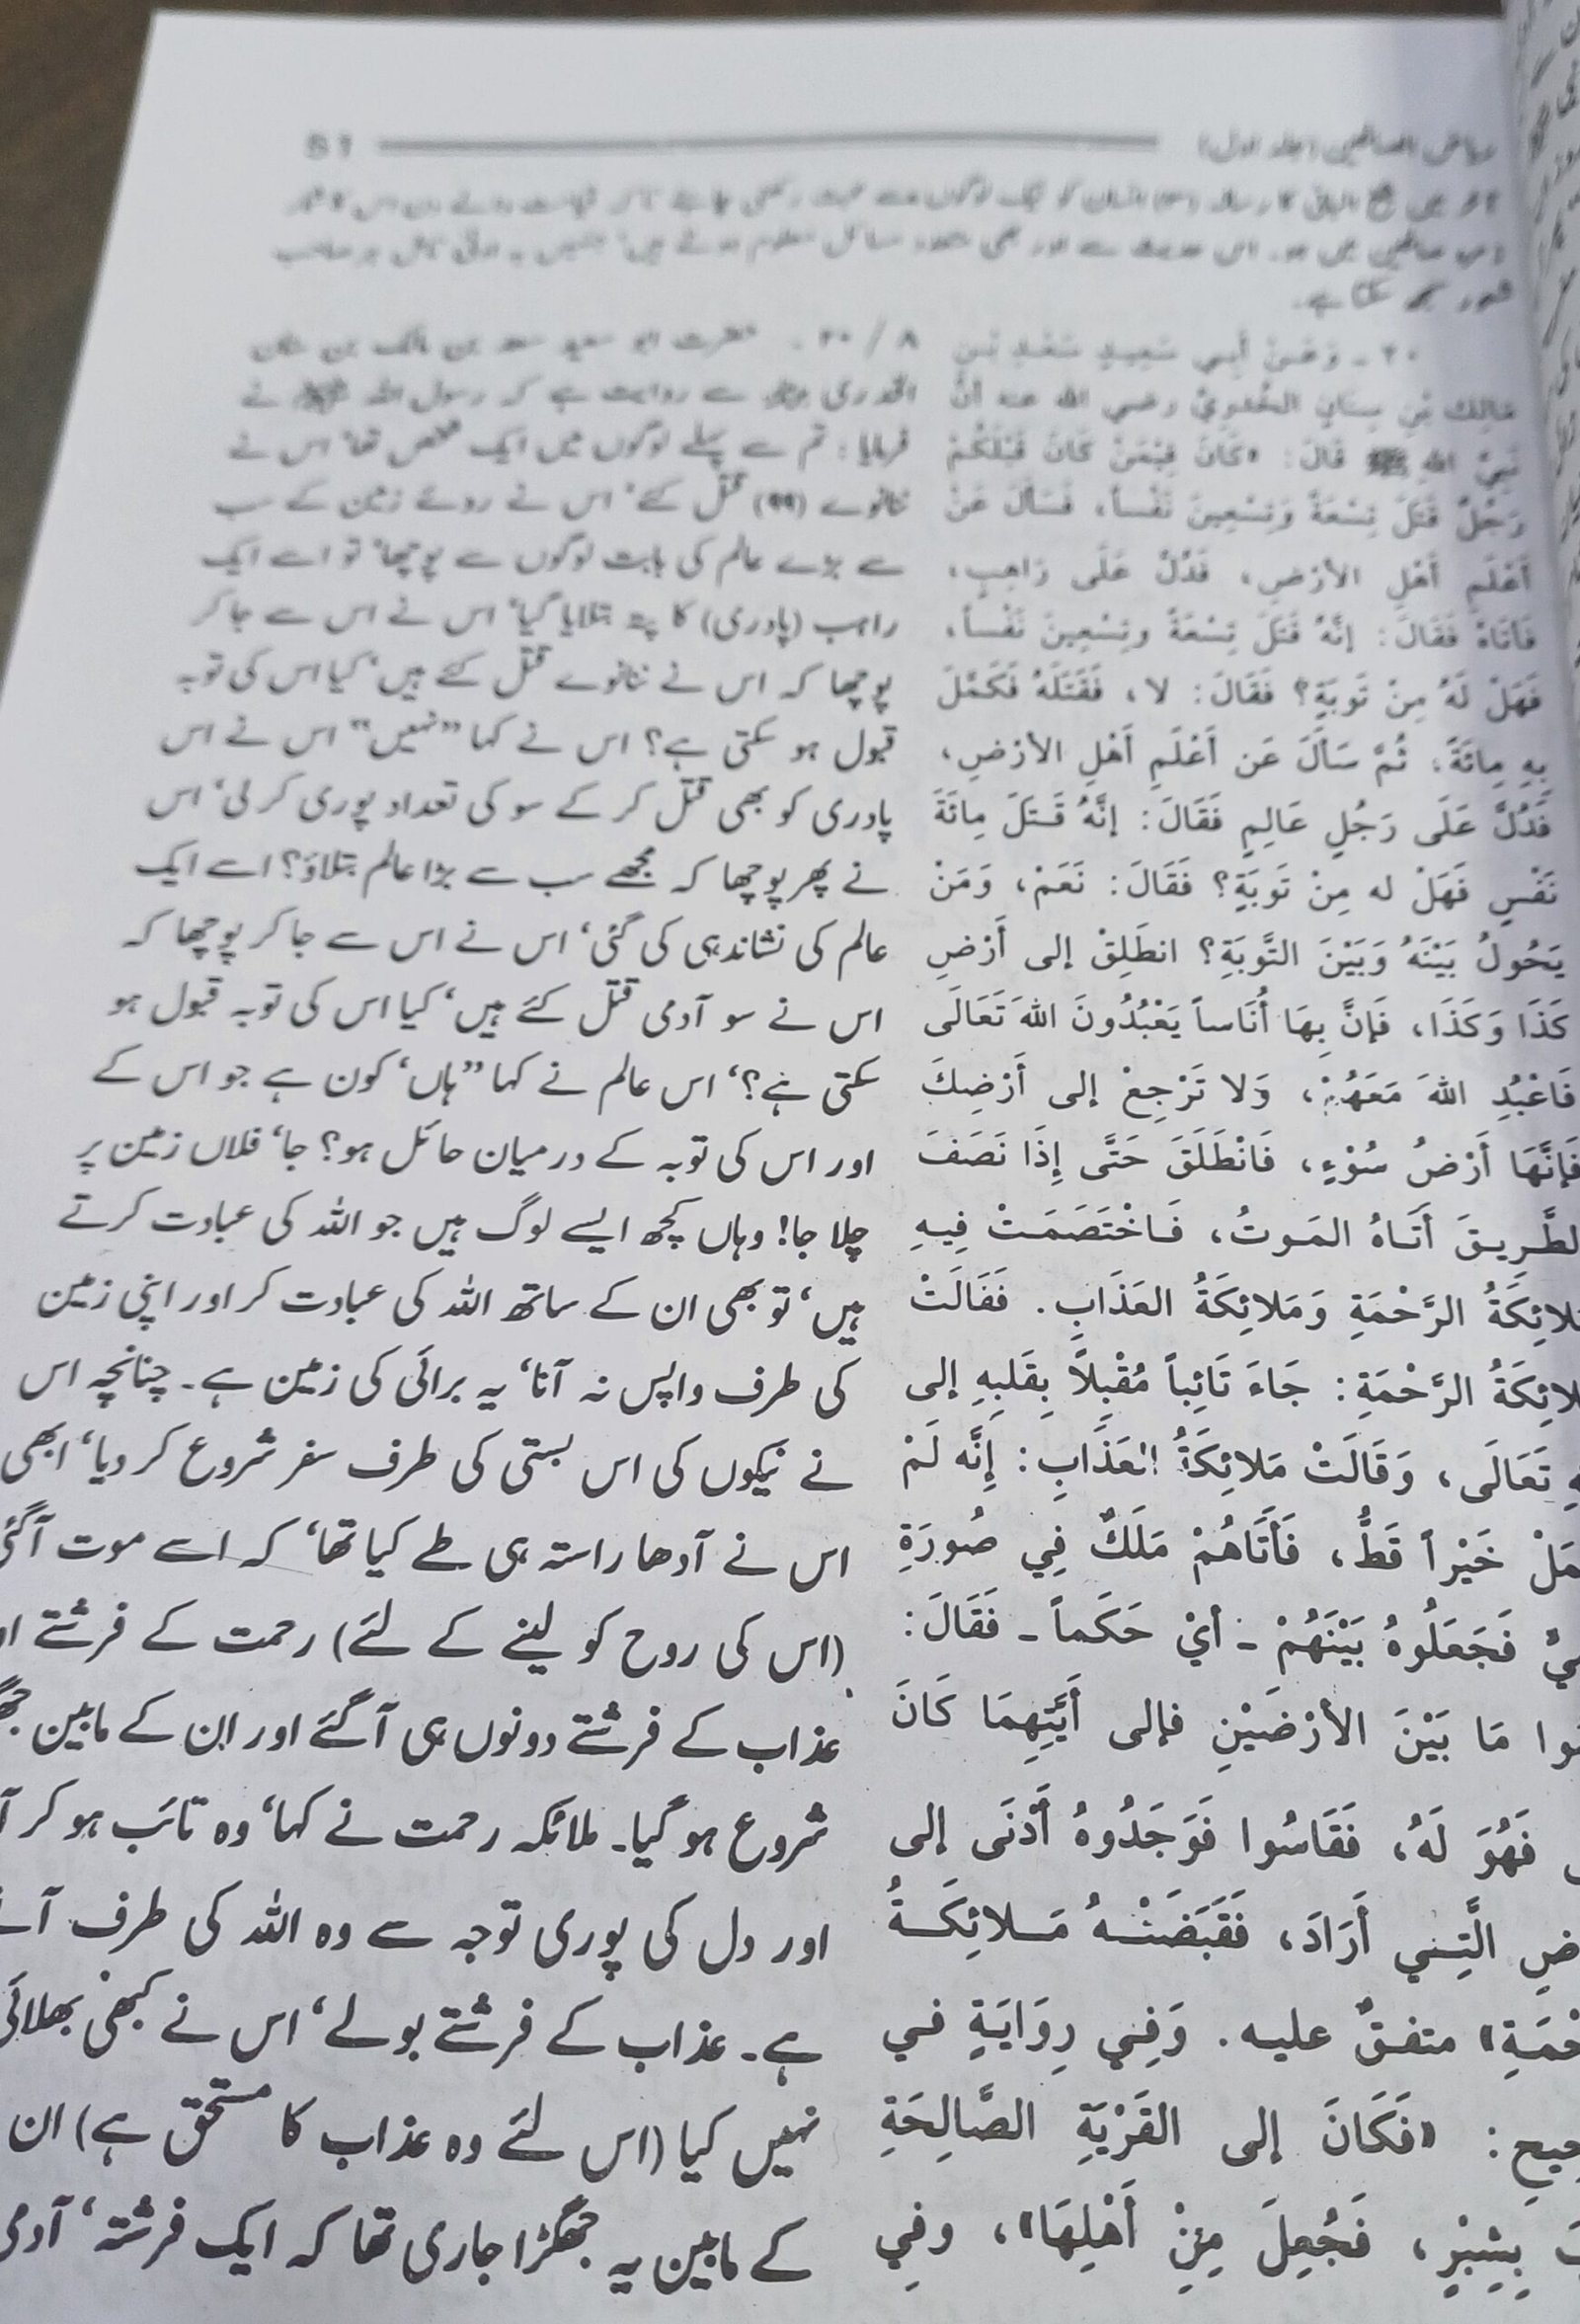 ریاض الصالحین (جلد اول) 51
شعور سمجھ سکتا ہے۔
٢٠ ـ وَعَنْ أبي سَعِيدٍ سَعْدِ بْنِ
مَالِكِ بْنِ سِنَانٍ الخُدْرِيِّ رضي الله عنه أنَّ
نَبِيَّ اللهِ ﷺ قَالَ: «كَانَ فِيْمَنْ كَانَ قَبْلَكُمْ
رَجُلٌ قَتَلَ تِسْعَةً وَتِسْعِينَ نَفْساً، فَسَأَلَ عَنْ
أَعْلَمِ أَهْلِ الأَرْضِ، فَدُلَّ عَلَى رَاهِبٍ،
فَأَتَاهُ فَقَالَ: إنَّهُ قَتَلَ تِسْعَةً وتِسْعِينَ نَفْساً،
فَهَلْ لَهُ مِنْ تَوبَةٍ؟ فَقَالَ: لا، فَقَتَلَهُ فَكَمَّلَ
بِهِ مِائَةً، ثُمَّ سَأَلَ عَن أَعْلَمِ أَهْلِ الأَرْضِ،
فَدُلَّ عَلَى رَجُلٍ عَالِمٍ فَقَالَ: إنَّهُ قَتَلَ مِائَةَ
نَفْسٍ فَهَلْ له مِنْ تَوبَةٍ؟ فَقَالَ: نَعَمْ، وَمَنْ
يَحُولُ بَيْنَهُ وَبَيْنَ التَّوبَةِ؟ انطَلِقْ إلى أَرْضِ
كَذَا وَكَذَا، فَإنَّ بِهَا أُنَاساً يَعْبُدُونَ اللهَ تَعَالَى
فَاعْبُدِ اللهَ مَعَهُمْ، وَلا تَرْجِعْ إلى أَرْضِكَ
فَإنَّهَا أَرْضُ سُوْءٍ، فَانْطَلَقَ حَتَّى إِذَا نَصَفَ
لطَّرِيقَ أَتَاهُ المَوتُ، فَاخْتَصَمَتْ فِيهِ
لائِكَةُ الرَّحْمَةِ وَمَلائِكَةُ العَذَابِ. فَقَالَتْ
لائِكَةُ الرَّحْمَةِ: جَاءَ تَائِباً مُقْبِلاً بِقَلبِهِ إلى
تَعَالَى، وَقَالَتْ مَلائِكَةُ العَذَابِ: إِنَّه لَمْ
مَلْ خَيْراً قَطُّ، فَأَتَاهُمْ مَلَكٌ فِي صُورَةِ
فَجَعَلُوهُ بَيْنَهُمْ ـ أيْ حَكَماً ـ فَقَالَ:
وا مَا بَيْنَ الأرْضَيْنِ فإلى أَيَّتِهِمَا كَانَ
فَهُوَ لَهُ، فَقَاسُوا فَوَجَدُوهُ أَدْنَى إلى
ضِ الَّتِي أَرَادَ، فَقَبَضَتْهُ مَلائِكَةُ
حْمَةِ» متفقٌ عليه. وَفِي رِوَايَةٍ في
حيحِ: «فَكَانَ إلى القَرْيَةِ الصَّالِحَةِ
بِشِبْرٍ، فَجُعِلَ مِنْ أَهْلِهَا»، وفي
٨ / ٢٠ ۔ حضرت ابو سعید سعد بن مالک بن سنان
الخدری سے روایت ہے کہ رسول اللہ ﷺ نے
فرمایا: تم سے پہلے لوگوں میں ایک شخص تھا‘ اس نے
ننانوے (٩٩) قتل کئے‘ اس نے روئے زمین کے سب
سے بڑے عالم کی بابت لوگوں سے پوچھا‘ تو اسے ایک
راہب (پادری) کا پتہ بتلایا گیا‘ اس نے اس سے جا کر
پوچھا کہ اس نے ننانوے قتل کئے ہیں‘ کیا اس کی توبہ
قبول ہو سکتی ہے؟ اس نے کہا ”نہیں“ اس نے اس
پادری کو بھی قتل کر کے سو کی تعداد پوری کر لی‘ اس
نے پھر پوچھا کہ مجھے سب سے بڑا عالم بتلاؤ؟ اسے ایک
عالم کی نشاندہی کی گئی‘ اس نے اس سے جا کر پوچھا کہ
اس نے سو آدمی قتل کئے ہیں‘ کیا اس کی توبہ قبول ہو
سکتی ہے؟‘ اس عالم نے کہا ”ہاں‘ کون ہے جو اس کے
اور اس کی توبہ کے درمیان حائل ہو؟ جا‘ فلاں زمین پر
چلا جا! وہاں کچھ ایسے لوگ ہیں جو اللہ کی عبادت کرتے
ہیں‘ تو بھی ان کے ساتھ اللہ کی عبادت کر اور اپنی زمین
کی طرف واپس نہ آنا‘ یہ برائی کی زمین ہے۔ چنانچہ اس
نے نیکوں کی اس بستی کی طرف سفر شروع کر دیا‘ ابھی
اس نے آدھا راستہ ہی طے کیا تھا‘ کہ اسے موت آگئی
(اس کی روح کو لینے کے لئے) رحمت کے فرشتے
عذاب کے فرشتے دونوں ہی آگئے اور ان کے مابین
شروع ہو گیا۔ ملائکہ رحمت نے کہا‘ وہ تائب ہو کر
اور دل کی پوری توجہ سے وہ اللہ کی طرف
ہے۔ عذاب کے فرشتے بولے‘ اس نے کبھی بھلائی
نہیں کیا (اس لئے وہ عذاب کا مستحق ہے) ان
کے مابین یہ جھگڑا جاری تھا کہ ایک فرشتہ‘ آدمی